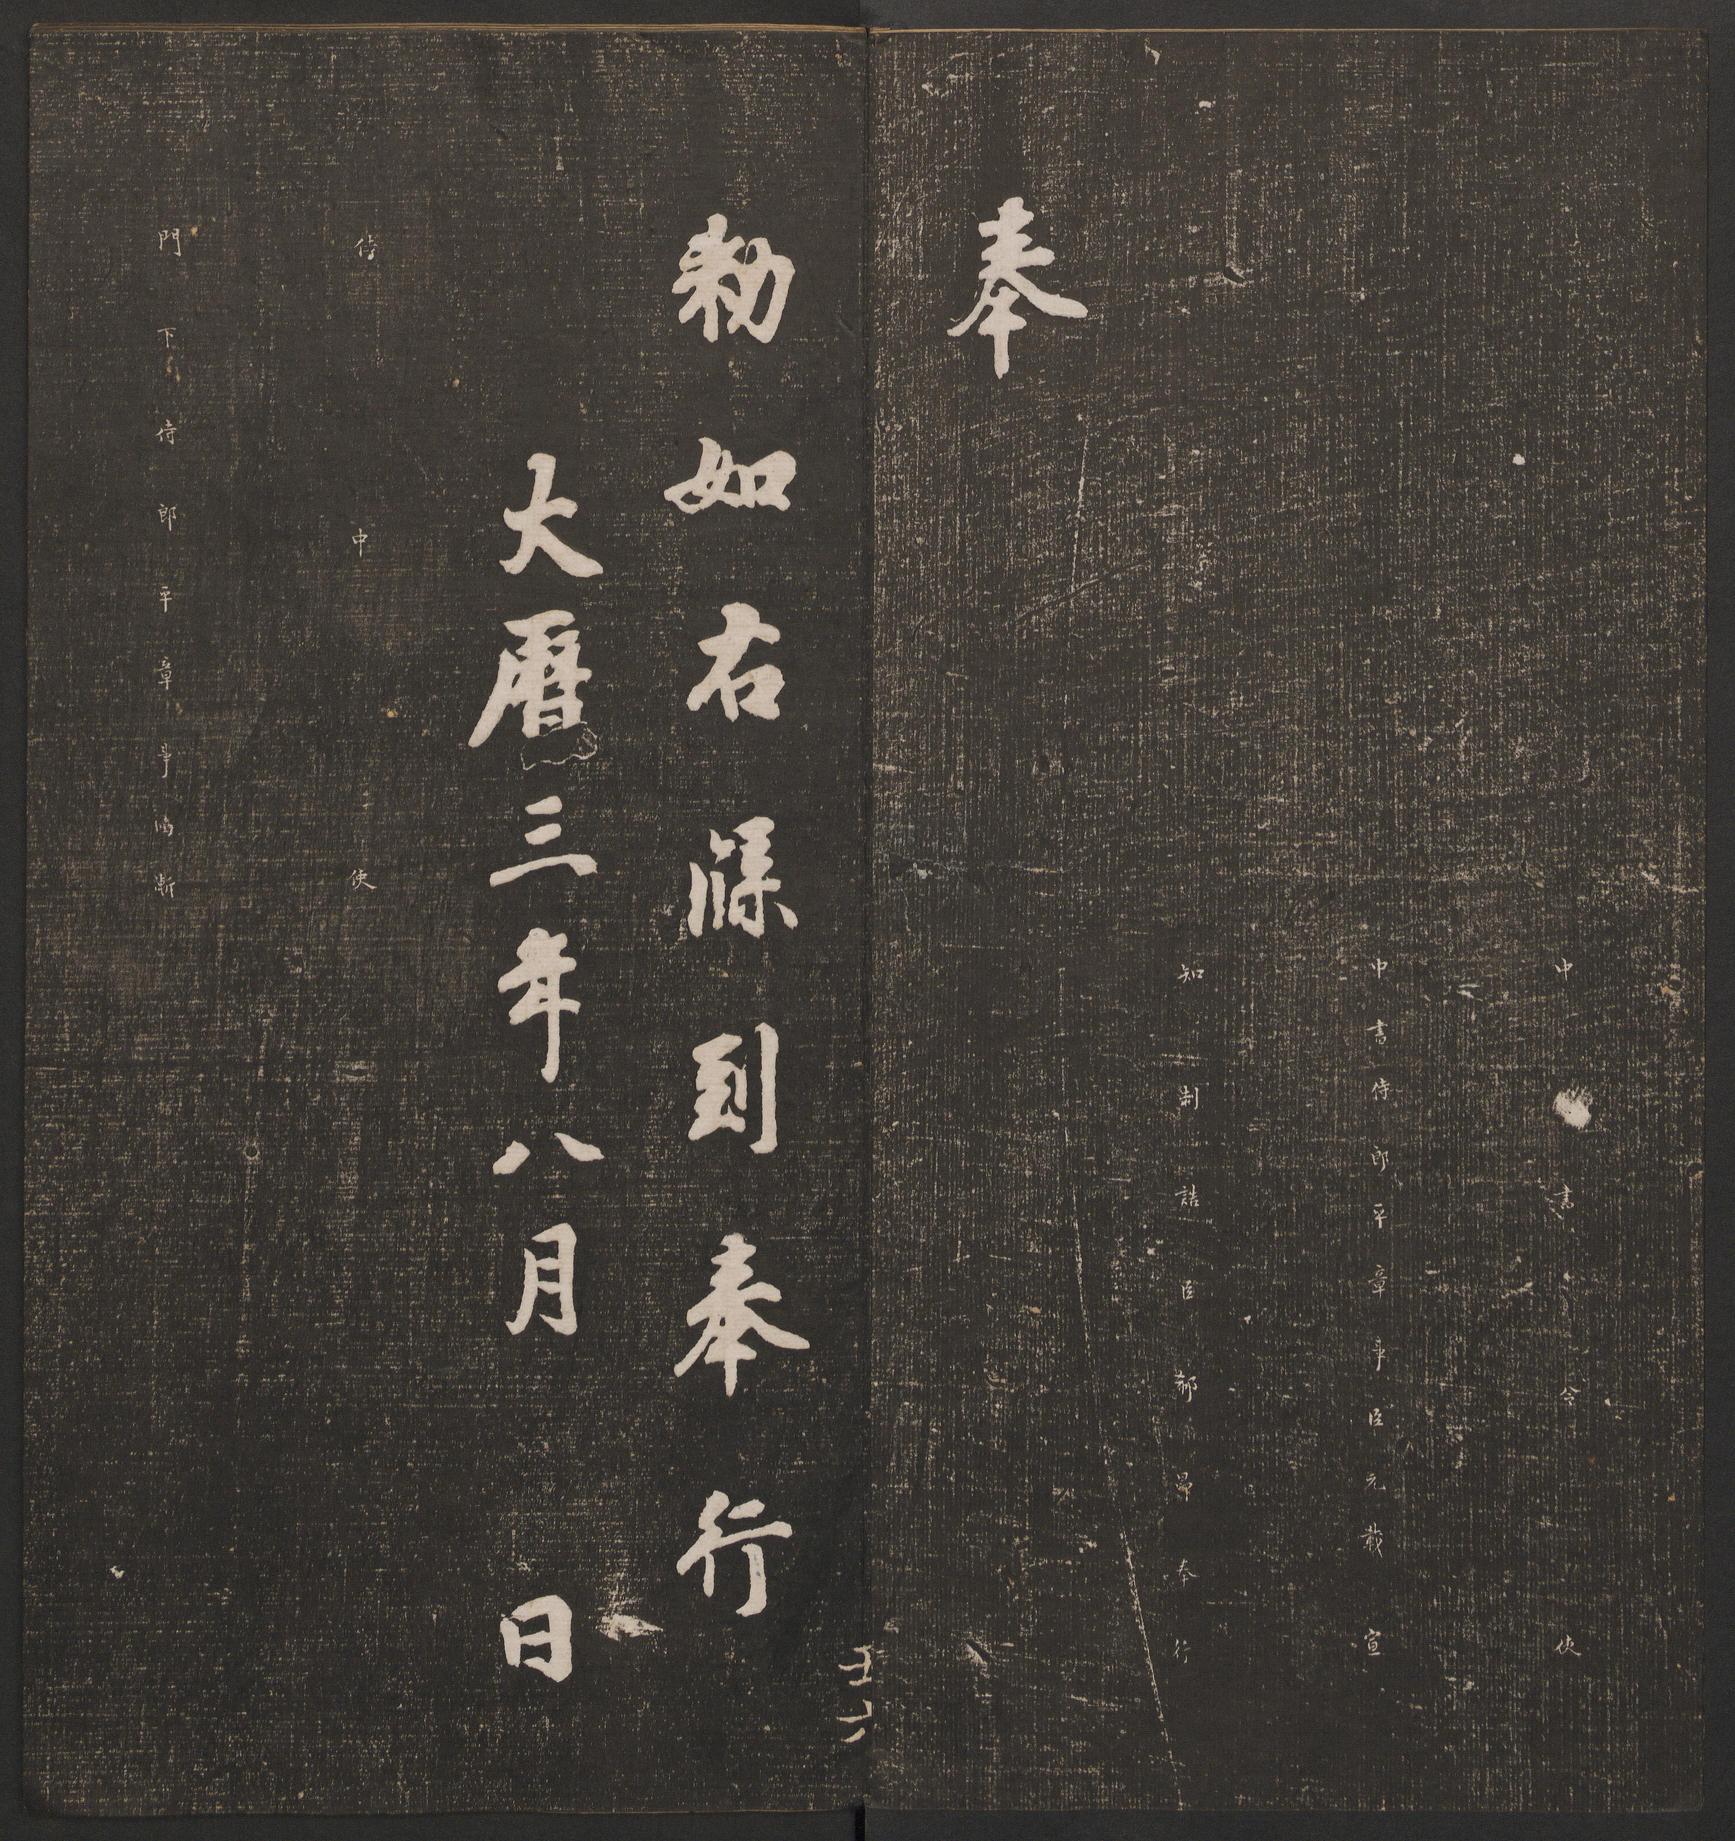 中書令使
中書侍郎平章事臣元載宣
知制誥臣郗昂奉行
奉
勑如右牒到奉行
大曆三年八月日
侍中使
門下侍郎平章事鴻漸
五六